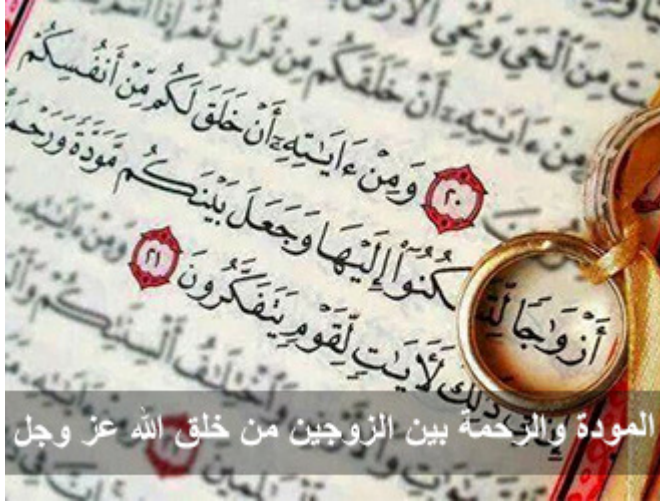 ت مِنَ ٱلْحَيِّ وَيُحْيِ ٱلْأَرْضَ
وَمِنْ ءَايَٰتِهِۦٓ أَنْ خَلَقَكُم مِّن تُرَابٍ ثُمَّ إِذَآ
٢٠ وَمِنْ ءَايَٰتِهِۦٓ أَنْ خَلَقَ لَكُم مِّنْ أَنفُسِكُمْ
أَزْوَٰجًا لِّتَسْكُنُوٓا۟ إِلَيْهَا وَجَعَلَ بَيْنَكُم مَّوَدَّةً وَرَحْمَ
ذَٰلِكَ لَءَايَٰتٍ لِّقَوْمٍ يَتَفَكَّرُونَ ٢١ وَمِنْ ءَايَٰتِهِۦ
وَٱخْتِلَٰفُ أَلْسِنَتِكُمْ وَأَلْ
المودة والرحمة بين الزوجين من خلق الله عز وجل